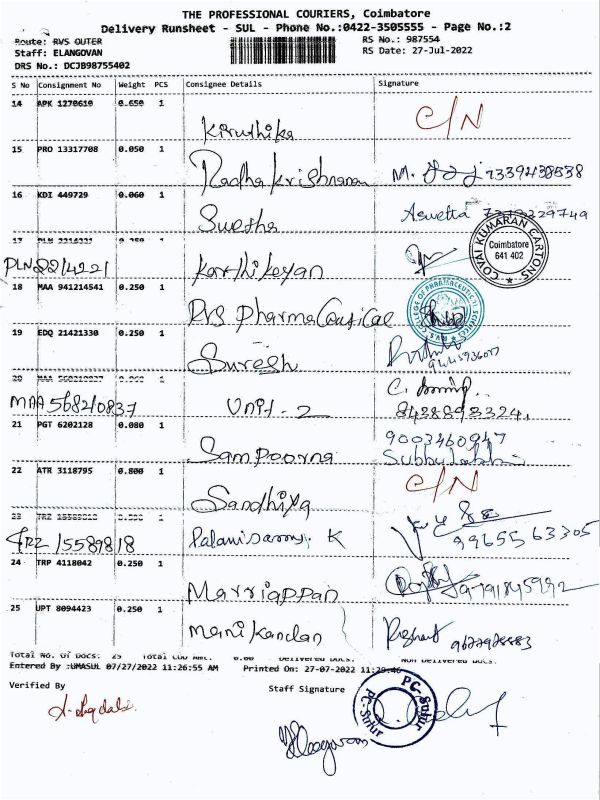 THE PROFESSIONAL COURIERS, Coimbatore
Delivery Runsheet - SUL - Phone No.:0422-3505555 - Page No.:2
Route: RVS OUTER RS No.: 987554
Staff: ELANGOVAN RS Date: 27-Jul-2022
DRS No.: DCJB98755402
S No Consignment No Weight PCS Consignee Details Signature
14 APK 1270610 0.650 1 Kiruthika C/N
15 PRO 13317708 0.050 1 Radha Krishnanan M.
16 KDI 449729 0.060 1 Swetha Aswetta
17 PLN 2214221 0.250 1
PLN 2214221 Karthikeyan
COVAI KUMARAN CARTONS Coimbatore 641 402
18 MAA 941214541 0.250 1 RVS Pharmaceutical
RVS COLLEGE OF PHARMACEUTICAL SCIENCES
19 EDQ 21421330 0.250 1 Suresh
20 MAA 568210837 1
MAA 568210837 Unit - 2 8428898324,
21 PGT 6202128 0.080 1 Sampoorna 9003460947
Subbulakshmi
22 ATR 3118795 0.800 1 Sandhiya C/N
23 TRZ 15589818 1
TRZ 15589818 Palanisamy. K 9965563305
24 TRP 4118042 0.250 1 Marriappan
25 UPT 8094423 0.250 1 Manikandan
Total No. Of Docs: 25 Total COD Amt: 0.00 Delivered Docs: Non Delivered Docs:
Entered By :UMASUL 07/27/2022 11:26:55 AM Printed On: 27-07-2022 11:29:46
Verified By Staff Signature
PC-Sulur PC-Sulur